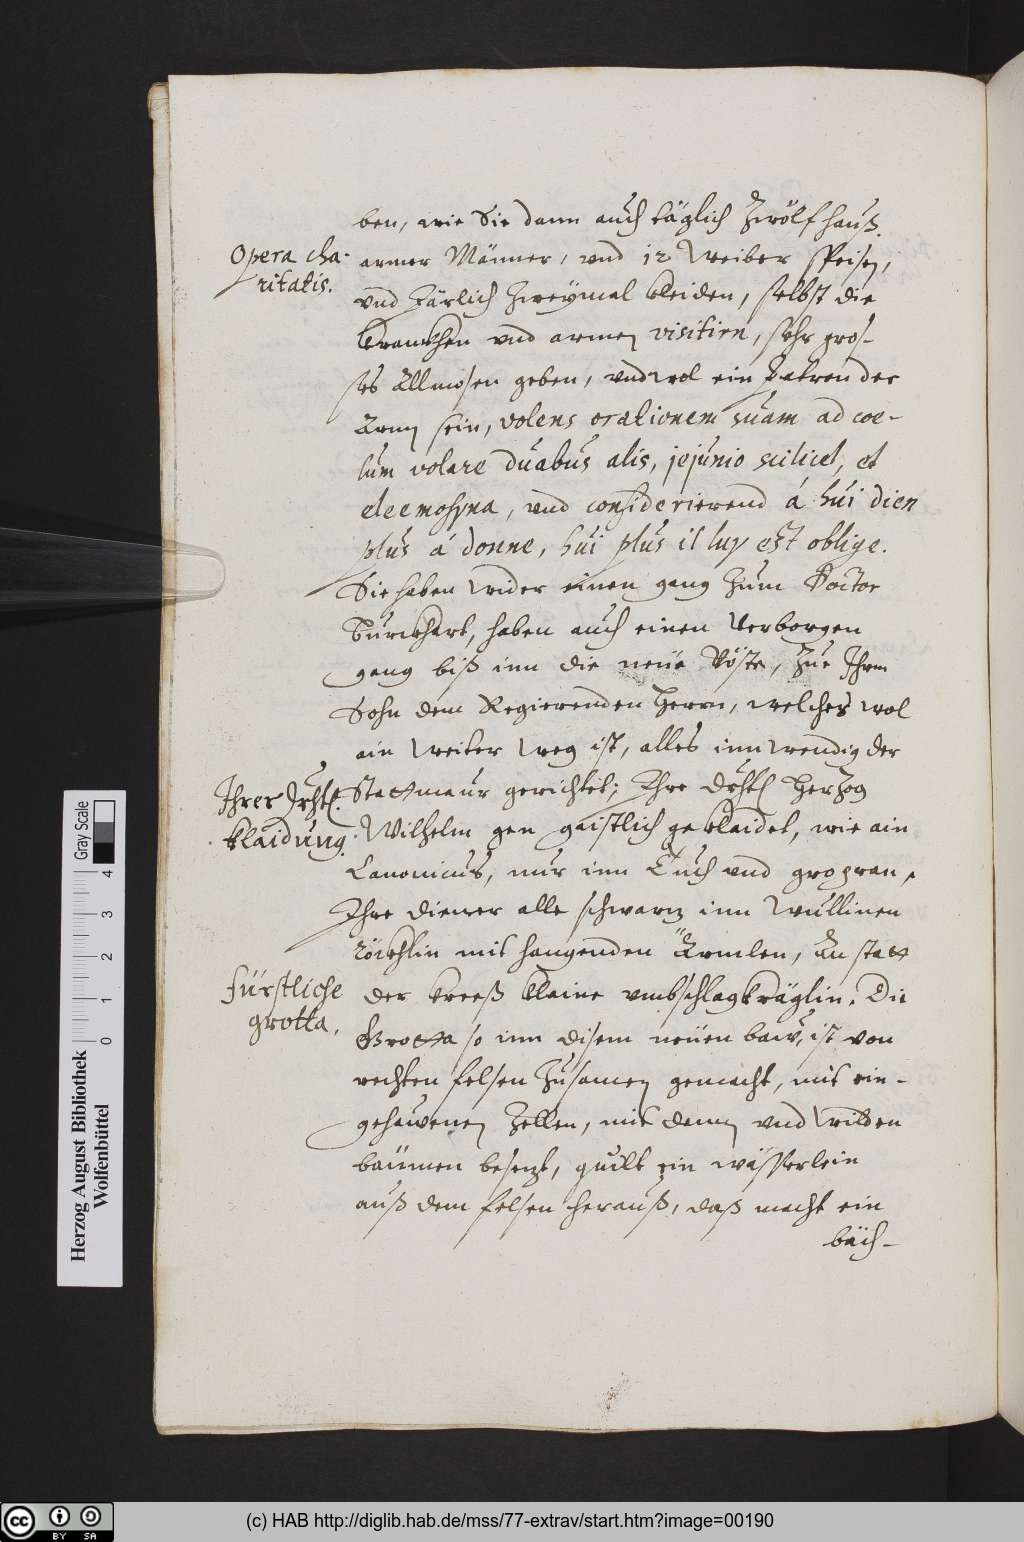 ben, wie Sie dann auch täglich Zwölf hauß
Opera cha-
ritatis.
armer Männer, vnd 12 Weiber speisen,
vnd Järlich Zweÿmal kleiden, selbst die
krankhen vnd armen visitirn, sehr gros-
ses Allmosen geben, vnd wol ein Patron der
Armen sein, volens orationem suam ad coe-
lum volare duabus alis, jejunio scilicet, et
eleemosyna, vnd considerierend á hui dien
plus á donne, hui plus il luy est oblige.
Sie haben wider einen gang Zum Doctor
Burckhart, haben auch einen Verborgen
gang biß inn die neüe Vöste, Zue Ihrm
Sohn dem Regierenden Herrn, welches wol
ain weiter weg ist, alles innwendig der
Ihrer Drhtl.
klaidung.
Stattmaur gerichtet; Ihre Drhtl Herzog
Wilhelm gen gaistlich geklaidet, wie ain
Canonicus, nur inn Tuch vnd grogran,
Ihre diener alle schwarz inn wullinen
röckhlin mit hangenden Ärmlen, An statt
fürstliche
grotta.
der kreeß klaine vmbschlagkräglin. Die
Grotta so inn disem neüen baw, ist von
rechten felsen Zusamen gemacht, mit ein-
gehawenen Zellen, mit denn vnd wilden
baümen besezt, quilt ein wässerlein
auß dem felsen herauß, daß macht ein
bäch-
Herzog August Bibliothek
Wolfenbüttel
Gray Scale
0 1 2 3 4
(c) HAB http://diglib.hab.de/mss/77-extrav/start.htm?image=00190
cc BY SA